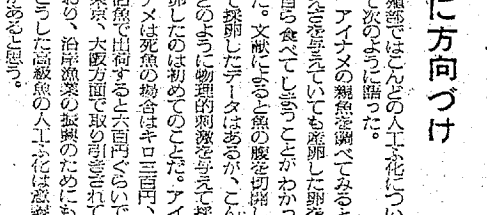 に方向づけ
殖部ではこんどの人工ふ化につい
て次のように語った。
アイナメの親魚を調べてみると
えさを与えていても産卵した卵を
自ら食べてしまうことがわかっ
た。文献によると魚の腹を切開し
て採卵したデータはあるが、こん
どのように物理的刺激を与えて採
卵したのは初めてのことだ。アイ
ナメは死魚の場合はキロ三百円、
活魚で出荷すると六百円ぐらいで
東京、大阪方面で取り引きされて
おり、沿岸漁業の振興のためにも
こうした高級魚の人工ふ化は意義
があると思う。